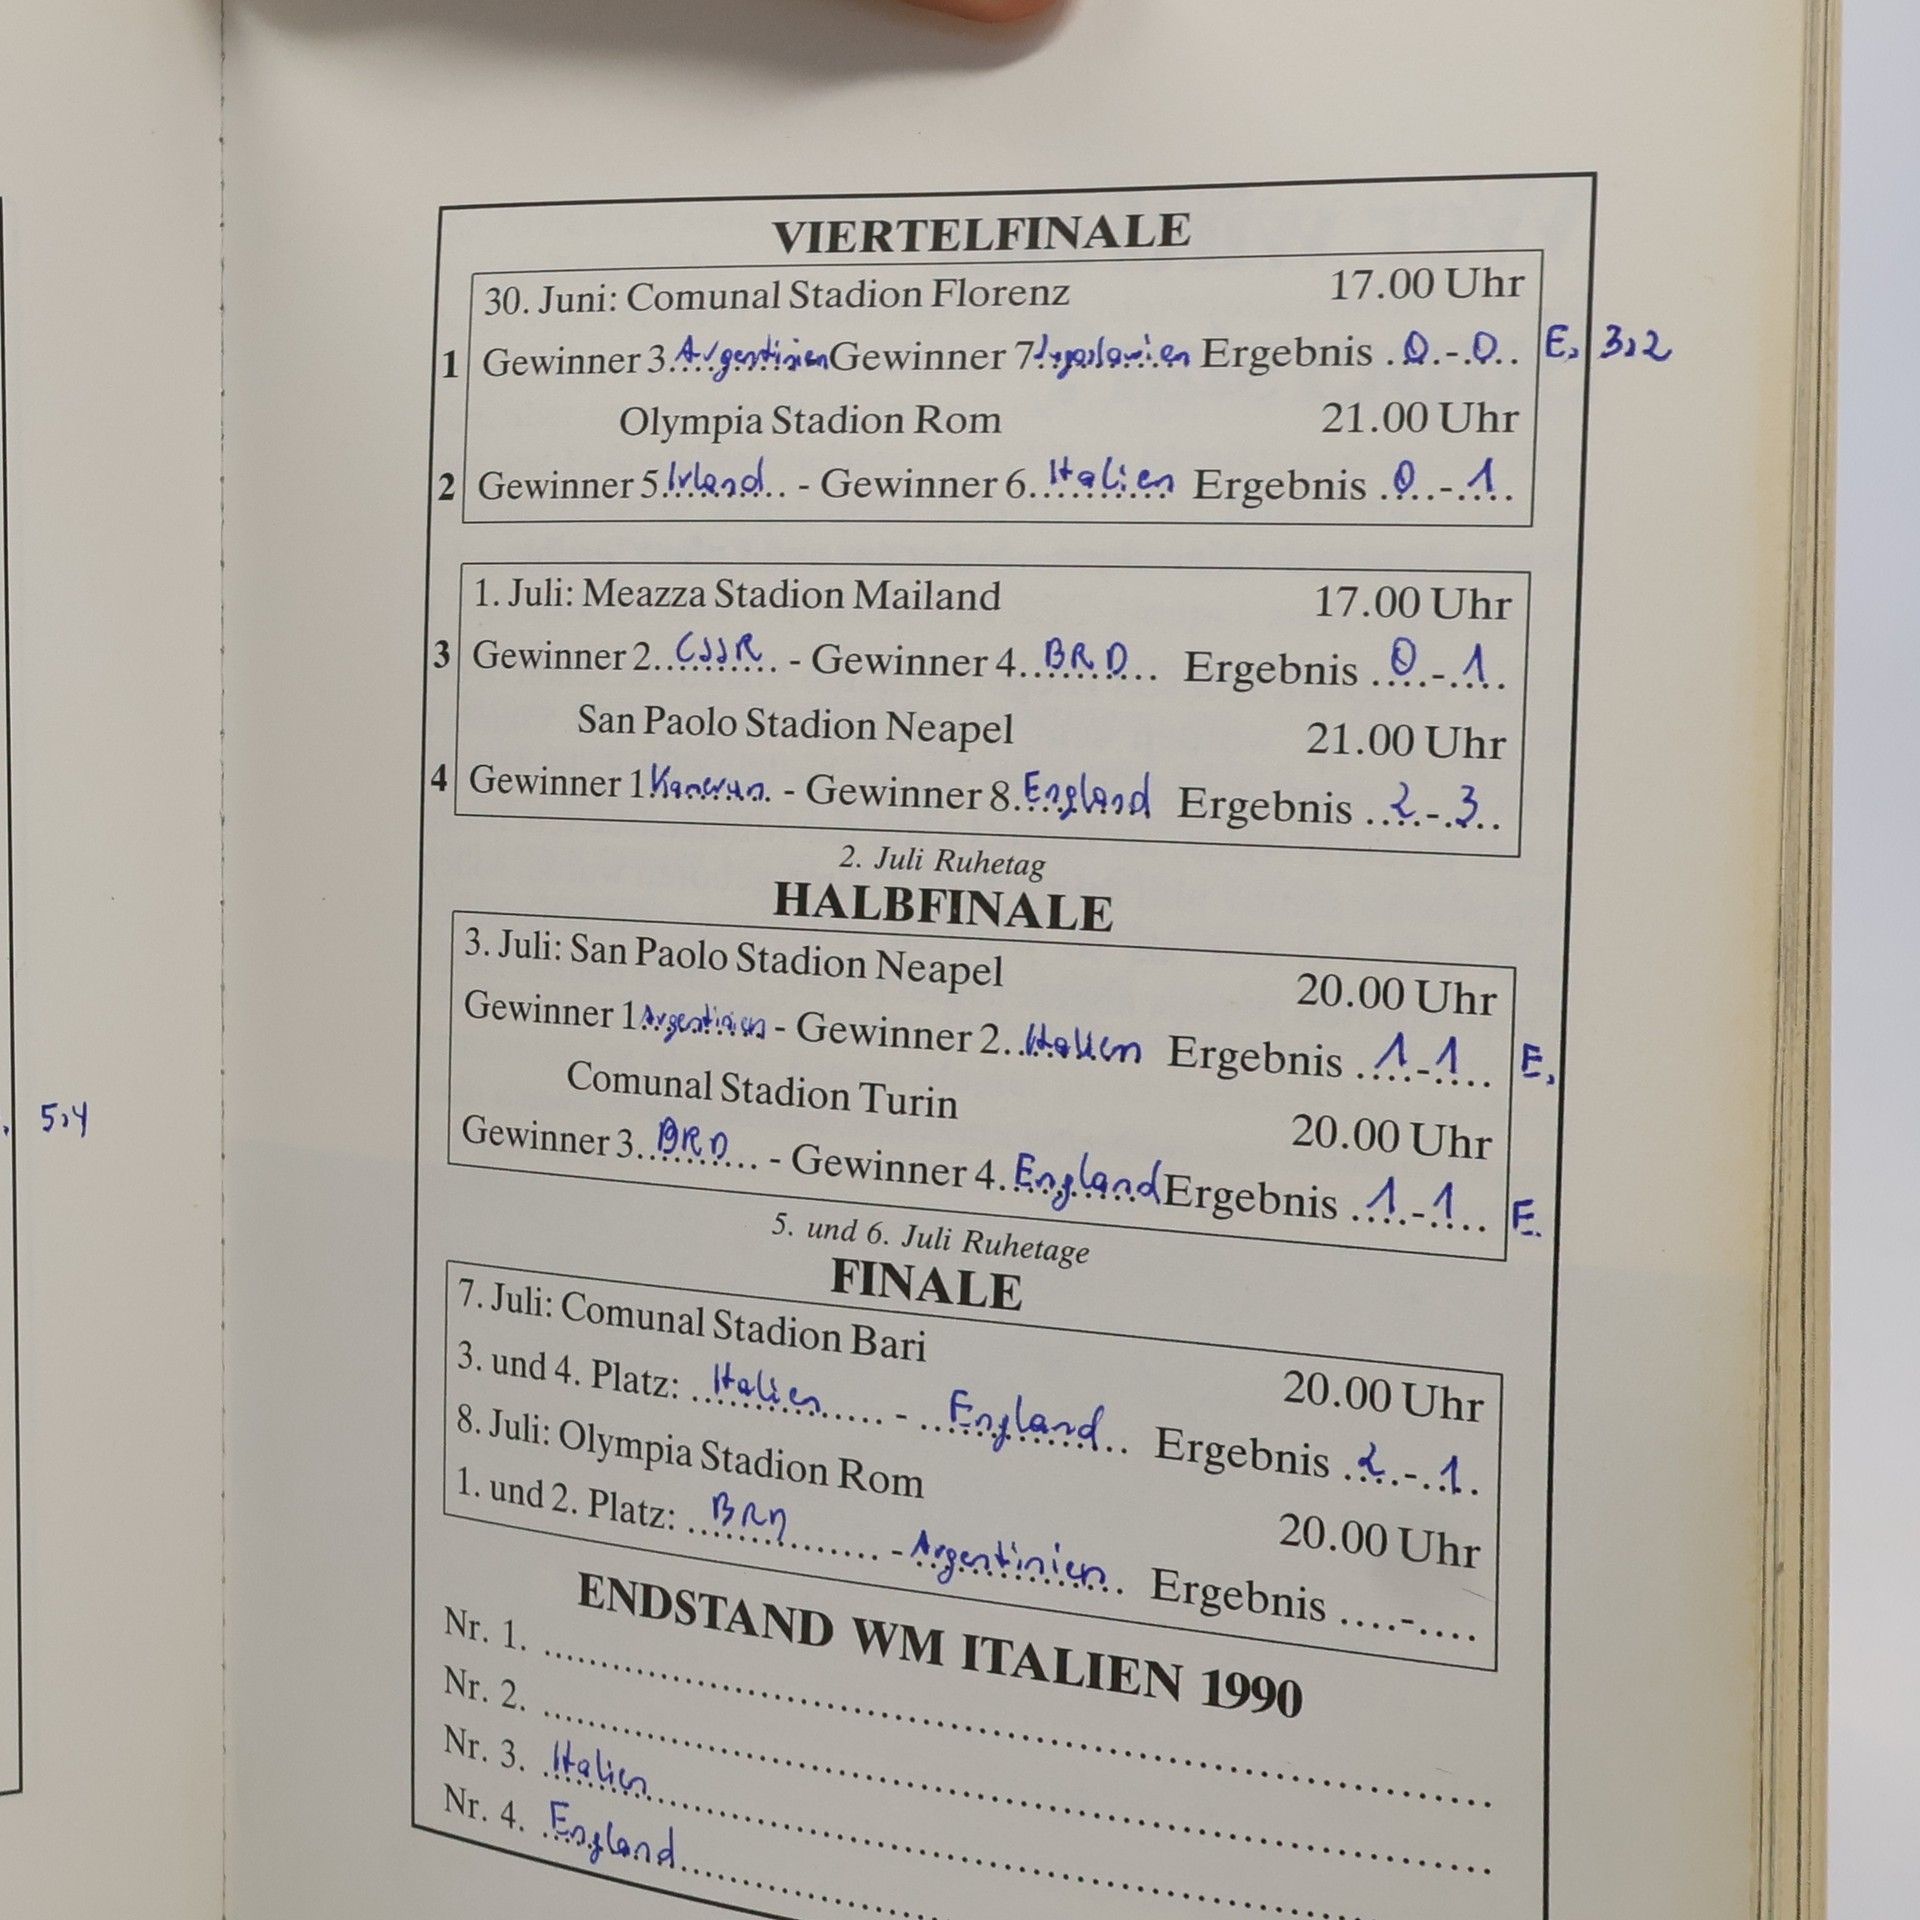 VIERTELFINALE
30. Juni: Comunal Stadion Florenz 17.00 Uhr
1 Gewinner 3 Argentinien Gewinner 7 Jugoslawien Ergebnis 0 - 0 E, 3,2
Olympia Stadion Rom 21.00 Uhr
2 Gewinner 5 Irland - Gewinner 6 Italien Ergebnis 0 - 1
1. Juli: Meazza Stadion Mailand 17.00 Uhr
3 Gewinner 2 CSSR - Gewinner 4 BRD Ergebnis 0 - 1
San Paolo Stadion Neapel 21.00 Uhr
4 Gewinner 1 Kamerun - Gewinner 8 England Ergebnis 2 - 3
2. Juli Ruhetag
HALBFINALE
3. Juli: San Paolo Stadion Neapel 20.00 Uhr
Gewinner 1 Argentinien - Gewinner 2 Italien Ergebnis 1 - 1 E,
Comunal Stadion Turin 20.00 Uhr
Gewinner 3 BRD - Gewinner 4 England Ergebnis 1 - 1 E.
5. und 6. Juli Ruhetage
FINALE
7. Juli: Comunal Stadion Bari 20.00 Uhr
3. und 4. Platz: Italien - England Ergebnis 2 - 1
8. Juli: Olympia Stadion Rom 20.00 Uhr
1. und 2. Platz: BRD - Argentinien Ergebnis ....-....
ENDSTAND WM ITALIEN 1990
Nr. 1.
Nr. 2.
Nr. 3. Italien
Nr. 4. England
5,4